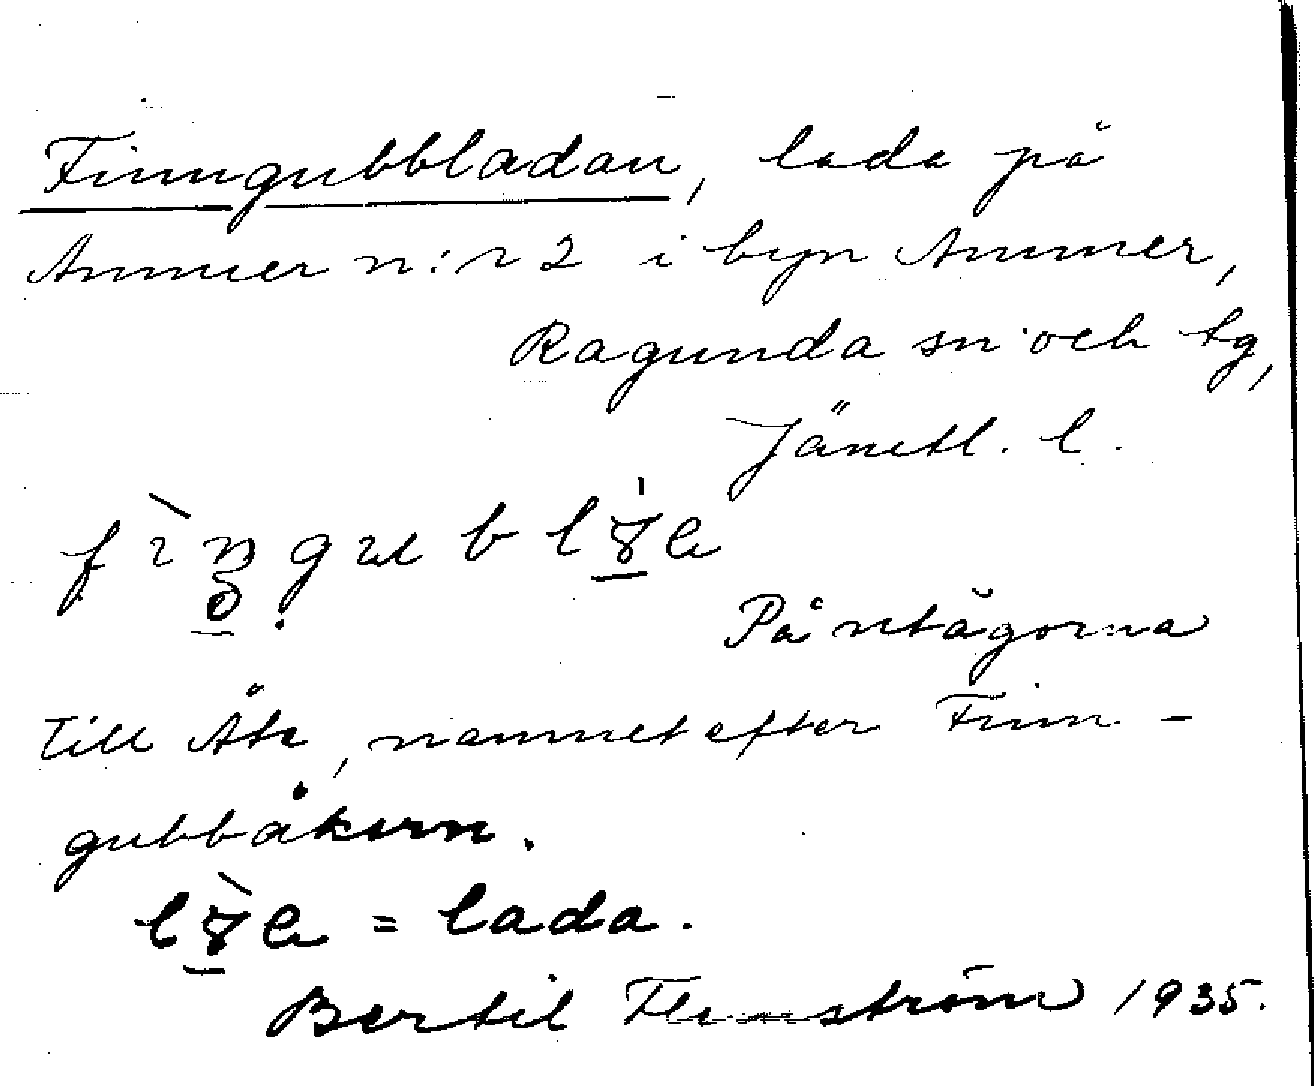 Finngubbladan, lada på
Ammer n:r 2 i byn Ammer,
Ragunda sn och tg,
Jämtl. l.
På utägorna
till Åk, namnet efter Finn-
gubbåkern.
= lada.
Bertil Flemström 1935.